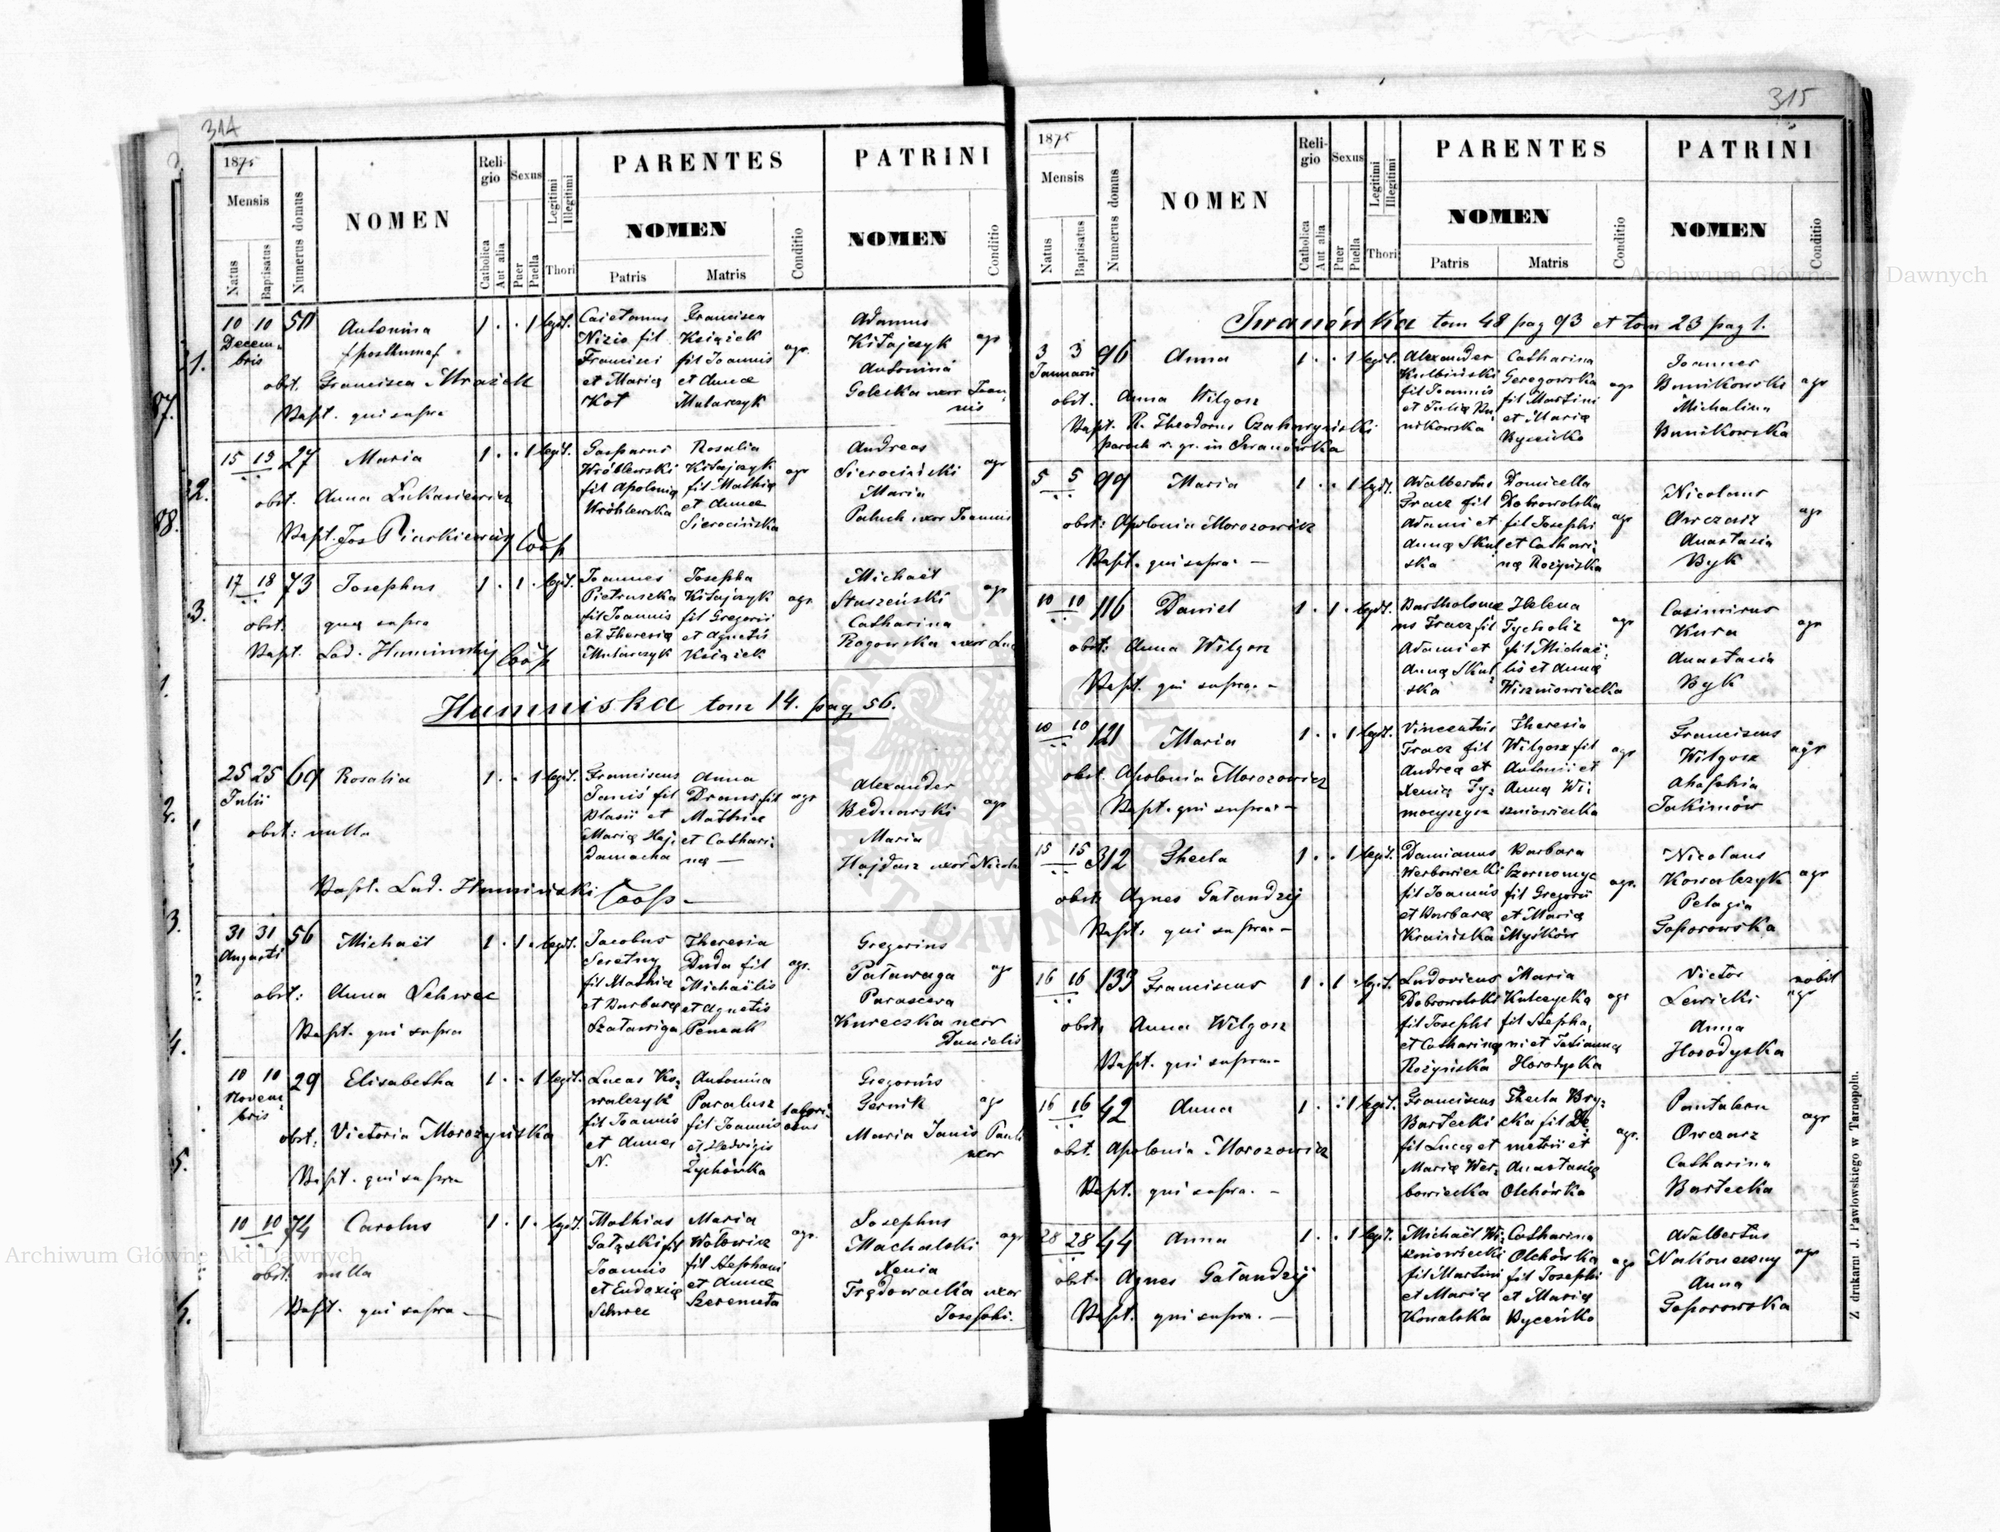 314
1875
Mensis
Natus
Baptisatus
Numerus domus
NOMEN
Religio
Catholica
Aut alia
Sexus
Puer
Puella
Legitimi
Illegitimi
Thori
PARENTES
NOMEN
Patris
Matris
Conditio
PATRINI
NOMEN
Conditio
10 10 50 Antonina 1 . . 1 legit.
Decembris
posthuma
obst. Francisca Mrażek
Bapt. qui supra
Caietanus
Nizio fil
Francisci
et Mariæ
Kot
Francisca
Książek
fil Joannis
et Annæ
Mularczyk
agr.
Adamus
Kitajczyk
Antonina
Golecka uxor Joannis
agr
15 15 27 Maria 1 . . 1 legit.
obst. Anna Lukasiewicz
Bapt. Jos Piaskiewicz Coop
Gasparus
Wróblewski
fil Apoloniæ
Wróblewska
Rosalia
Kitajczyk
fil Mathiæ
et Annæ
Sierocińska
agr
Andreas
Sierociński
Maria
Paluch uxor Joannis
agr
17 18 73 Josephus 1 . 1 . legit.
obst. quæ supra
Bapt. Lad. Humiński Coop
Joannes
Pietruszka
fil Joannis
et Theresiæ
Mularczyk
Josepha
Kitajczyk
fil Gregorii
et Agnetis
Książek
agr.
Michaël
Staszeński
Catharina
Rogowska uxor Luc
agr
Humniska tom 14. pag 56.
25 25 69 Rosalia 1 . . 1 legit.
Julii
obst: nulla
Bapt. Lad. Humiński Coop
Franciscus
Janiś fil
Blasii et
Mariæ Haj
damacha
Anna
Draus fil
Mathiæ
et Catharinæ
agr
Alexander
Bednarski
Maria
Hajdasz uxor Nicola
agr
31 31 56 Michaël 1 . 1 . legit.
Augusti
obst: Anna Schwec
Bapt. qui supra
Jacobus
Seretny
fil Mathiæ
et Barbaræ
Szatawiga
Theresia
Duda fil
Michaëlis
et Agnetis
Penzak
agr.
Gregorius
Patawaga
Parasceva
Kurecska uxor
Danielis
agr
10 10 29 Elisabetha 1 . . 1 legit.
Novembris
obst: Victoria Morożyńska
Bapt. qui supra
Lucas Kowalczyk
fil Joannis
et Annæ
N.
Antonina
Paralusz
fil Joannis
et Hedvigis
Zychówka
laboriosus
Gregorius
Gernik
Maria Janis Pauli
uxor
agr
10 10 74 Carolus 1 . 1 . legit.
obst. nulla
Bapt. qui supra
Mathias
Gałęski fil
Joannis
et Eudoxiæ
Schwec
Maria
Wołowicz
fil Stephani
et Annæ
Szeremeta
agr.
Josephus
Machalski
Xenia
Trędowacka uxor
Josephi.
agr
315
1875
Mensis
Natus
Baptisatus
Numerus domus
NOMEN
Religio
Catholica
Aut alia
Sexus
Puer
Puella
Legitimi
Illegitimi
Thori
PARENTES
NOMEN
Patris
Matris
Conditio
PATRINI
NOMEN
Conditio
Iwanówka tom 48 pag 93 et tom 23 pag 1.
3 3 96 Anna 1 . . 1 legit.
Januarii
obst. Anna Wilgosz
Bapt. R. Theodorus
Paroch r. gr. in Iwanówka
Alexander
Kulbiński
fil Joannis
et Juliæ Bunikowska
Catharina
Geregowska
fil Martini
et Mariæ
Byczisko
agr
Joannes
Bunikowski
Michalina
Bunikowska
agr
5 5 99 Maria 1 . . 1 legit.
obst: Apolonia Morozowicz
Bapt. qui supra. —
Adalbertus
Gracz fil
Adami et
Annæ Skulska
Domicella
Dobrowolska
fil Josephi
et Catharinæ
Rożyńska
agr
Nicolaus
Owczarz
Anastasia
Byk
agr
10 10 116 Daniel 1 . 1 . legit.
obst: Anna Wilgosz
Bapt. qui supra. —
Bartholomæus
Tracz fil
Adami et
Annæ Skulska
Helena
Tycholiz
fil Michaëlis
et Annæ
Wiszniowiecka
agr
Casimirus
Kura
Anastasia
Byk
agr
10 10 121 Maria 1 . . 1 legit.
obst. Apolonia Morozowicz
Bapt. qui supra —
Vincentius
Tracz fil
Andreæ et
Xeniæ Tymocyszyn
Theresia
Wilgosz fil
Antonii et
Annæ Wiszniowiecka
agr
Franciscus
Wilgosz
Ahaphia
Jakimów
agr
15 15 312 Thecla 1 . . 1 legit.
obst: Agnes Gałandzij
Bapt. qui supra —
Damianus
Werbowiecki
fil Joannis
et Barbaræ
Krainska
Barbara
fil Gregorii
et Mariæ
Myśków
agr.
Nicolaus
Kowalczyk
Pelagia
Goporowska
agr
16 16 133 Franciscus 1 . 1 . legit.
obst: Anna Wilgosz
Bapt. qui supra —
Ludovicus
Dobrowolski
fil Josephi
et Catharinæ
Rożyńska
Maria
Kulczycka
fil Stephani
et Tatiannæ
Horodyska
agr
Victor
Lewicki
Anna
Horodyska
nobil
agr
16 16 42 Anna 1 . . 1 legit.
obst. Apolonia Morozowicz
Bapt. qui supra. —
Franciscus
Bartecki
fil Lucæ et
Mariæ Werbowiecka
Thecla Bryska
fil Demetrii et
Anastasiæ
Olchówka
agr.
Pantaleon
Owczarz
Catharina
Bartecka
agr
28 28 44 Anna 1 . . 1 legit.
obst. Agnes Gałandzij
Bapt. qui supra. —
Michaël Wiszniowiecki
fil Martini
et Mariæ
Kowalska
Catharina
Olchówka
fil Josephi
et Mariæ
Byczisko
agr
Adalbertus
Nakoneczny
Anna
Goporowska
agr
Z drukarni J. Pawłowskiego w Tarnopolu.
Archiwum Główne Akt Dawnych
Archiwum Główne Akt Dawnych